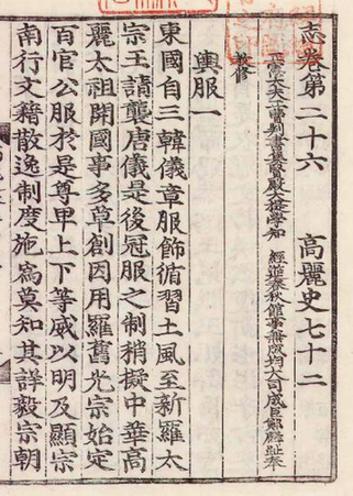 志卷第二十六 高麗史七十二
正憲大夫工曹判書集賢殿大提學知 經筵春秋館事兼成均大司成臣鄭麟趾奉
敎修
輿服一
東國自三韓儀章服飾循習土風至新羅太
宗王請襲唐儀是後冠服之制稍擬中華高
麗太祖開國事多草創因用羅舊光宗始定
百官公服於是尊卑上下等威以明及顯宗
南行文籍散逸制度施爲莫知其詳毅宗朝